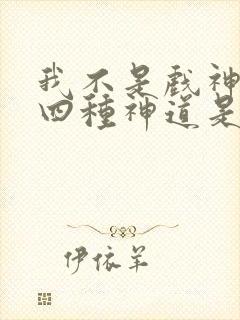 我不是戲神
四種神道是
伊依羊